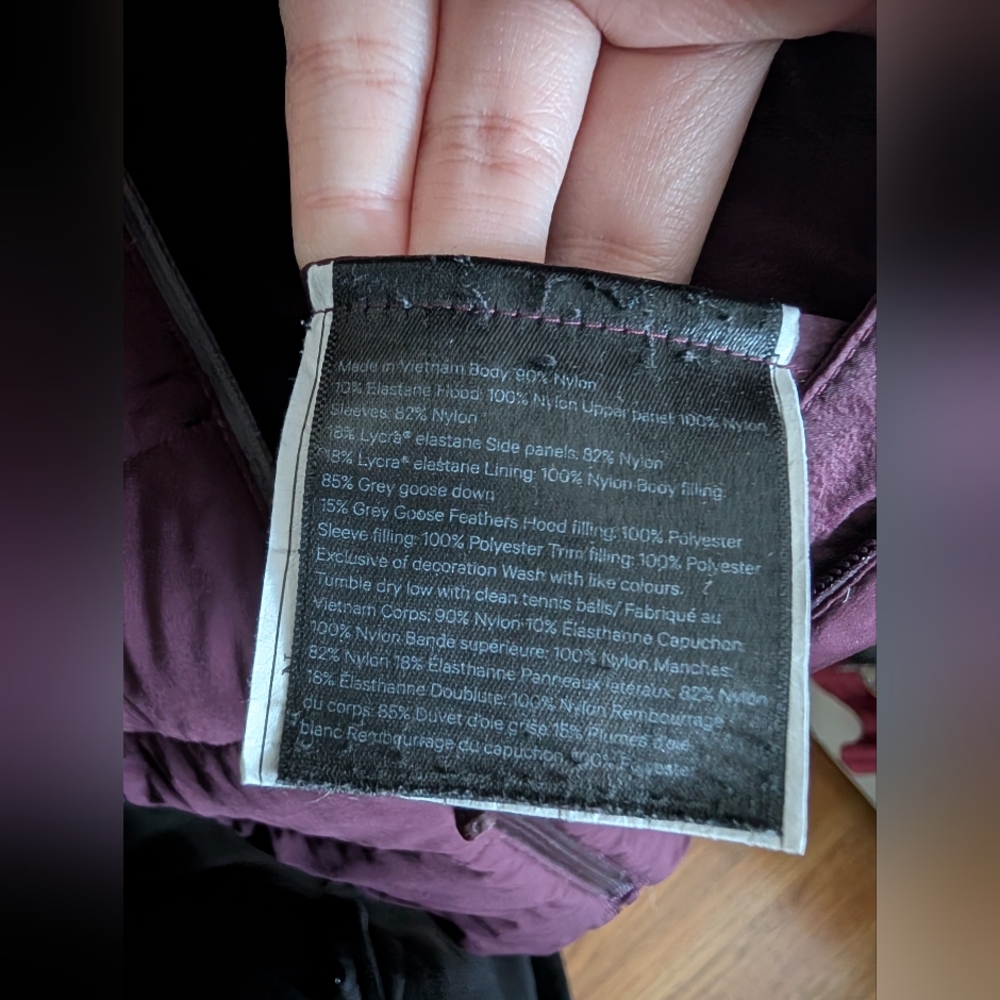 Made in Vietnam Body 90% Nylon
10% Elastane Hood: 100% Nylon Upper panel 100% Nylon
Sleeves: 82% Nylon
18% Lycra® elastane Side panels: 82% Nylon
18% Lycra® elastane Lining: 100% Nylon Body filling:
85% Grey goose down
15% Grey Goose Feathers Hood filling: 100% Polyester
Sleeve filling: 100% Polyester Trim filling: 100% Polyester
Exclusive of decoration Wash with like colours.
Tumble dry low with clean tennis balls/ Fabriqué au
Vietnam Corps: 90% Nylon 10% Élasthanne Capuchon:
100% Nylon Bande supérieure: 100% Nylon Manches:
82% Nylon 18% Élasthanne Panneaux latéraux: 82% Nylon
18% Élasthanne Doublure: 100% Nylon Rembourrage
du corps: 85% Duvet d'oie grise 15% Plumes d'oie
blanc Rembourrage du capuchon: 100% Polyester